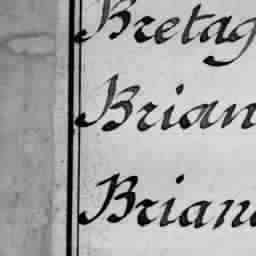 Bretag
Brian
Briand